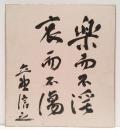 楽而不淫
哀而不傷